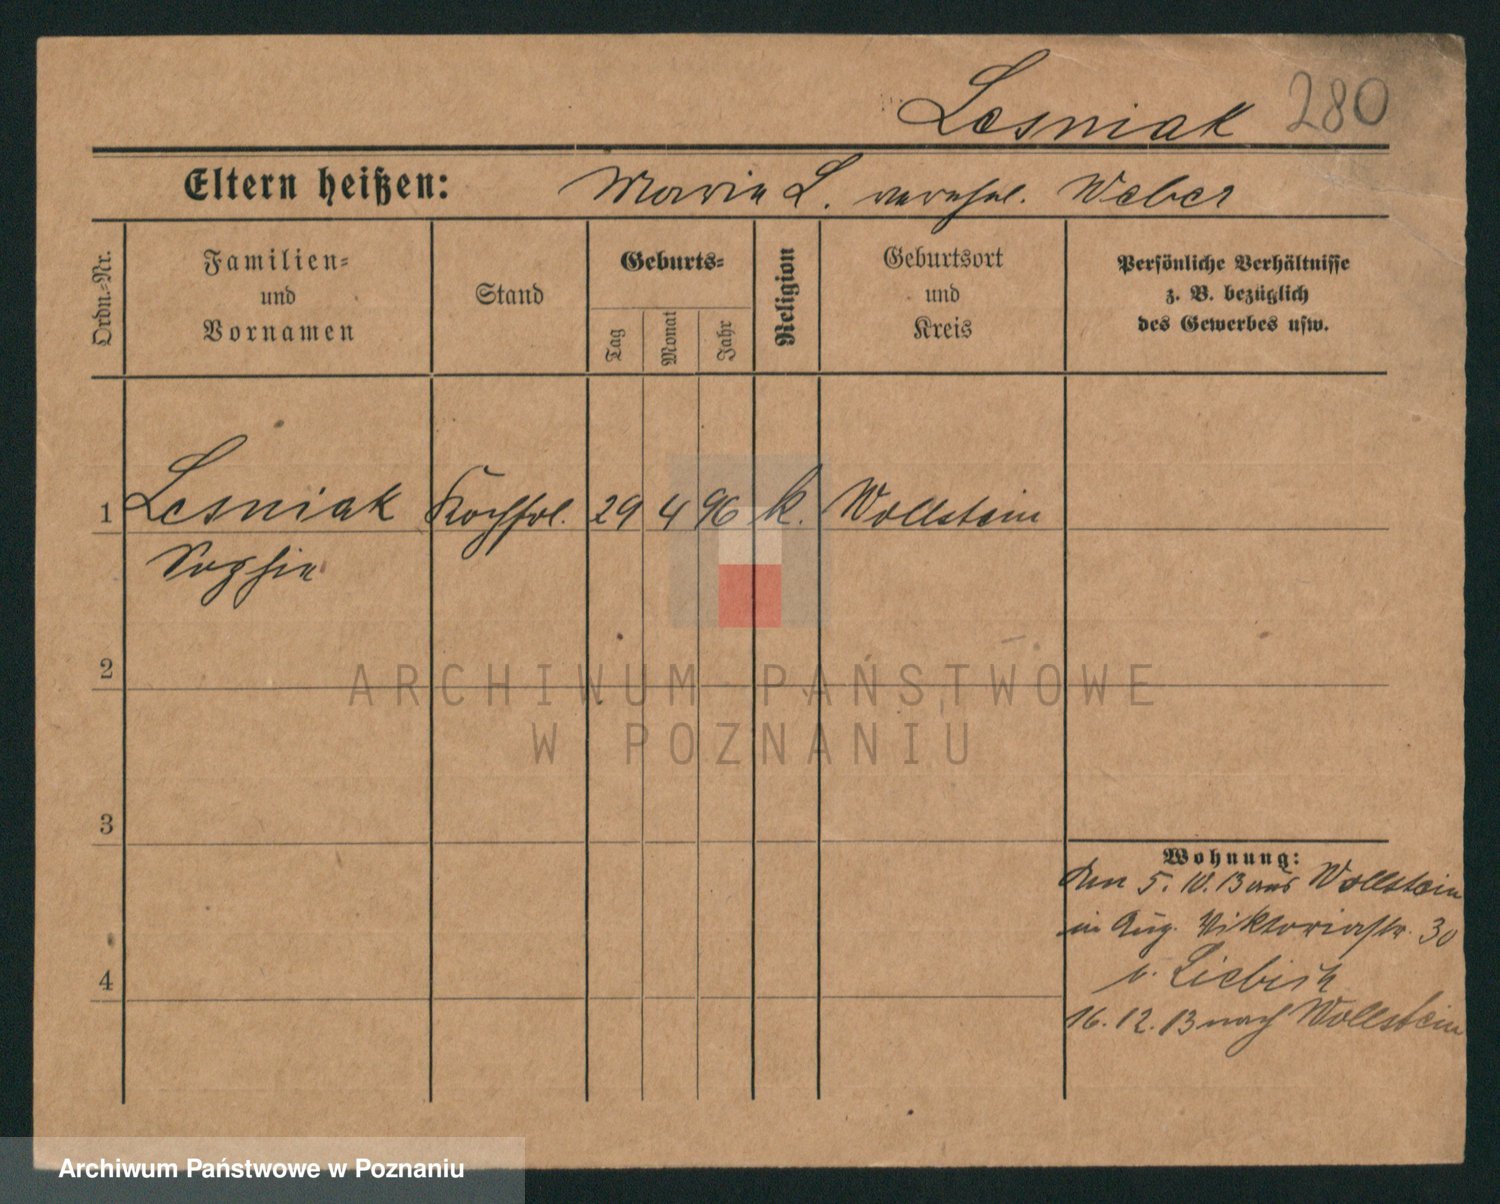 Lesniak 280
Eltern heißen: Marie L. verehel. Weber
Ordn.-Nr.
Familien-
und
Vornamen
Stand
Geburts-
Tag
Monat
Jahr
Religion
Geburtsort
und
Kreis
Persönliche Verhältnisse
z. B. bezüglich
des Gewerbes usw.
1 Lesniak Kochfrl. 29 4 96 k. Wollstein
Sophie
2
ARCHIWUM PAŃSTWOWE
W POZNANIU
3
Wohnung:
Den 5. 10. 13 aus Wollstein
in Aug. Viktoriastr. 30
b. Liebich
4
16. 12. 13 nach Wollstein
Archiwum Państwowe w Poznaniu